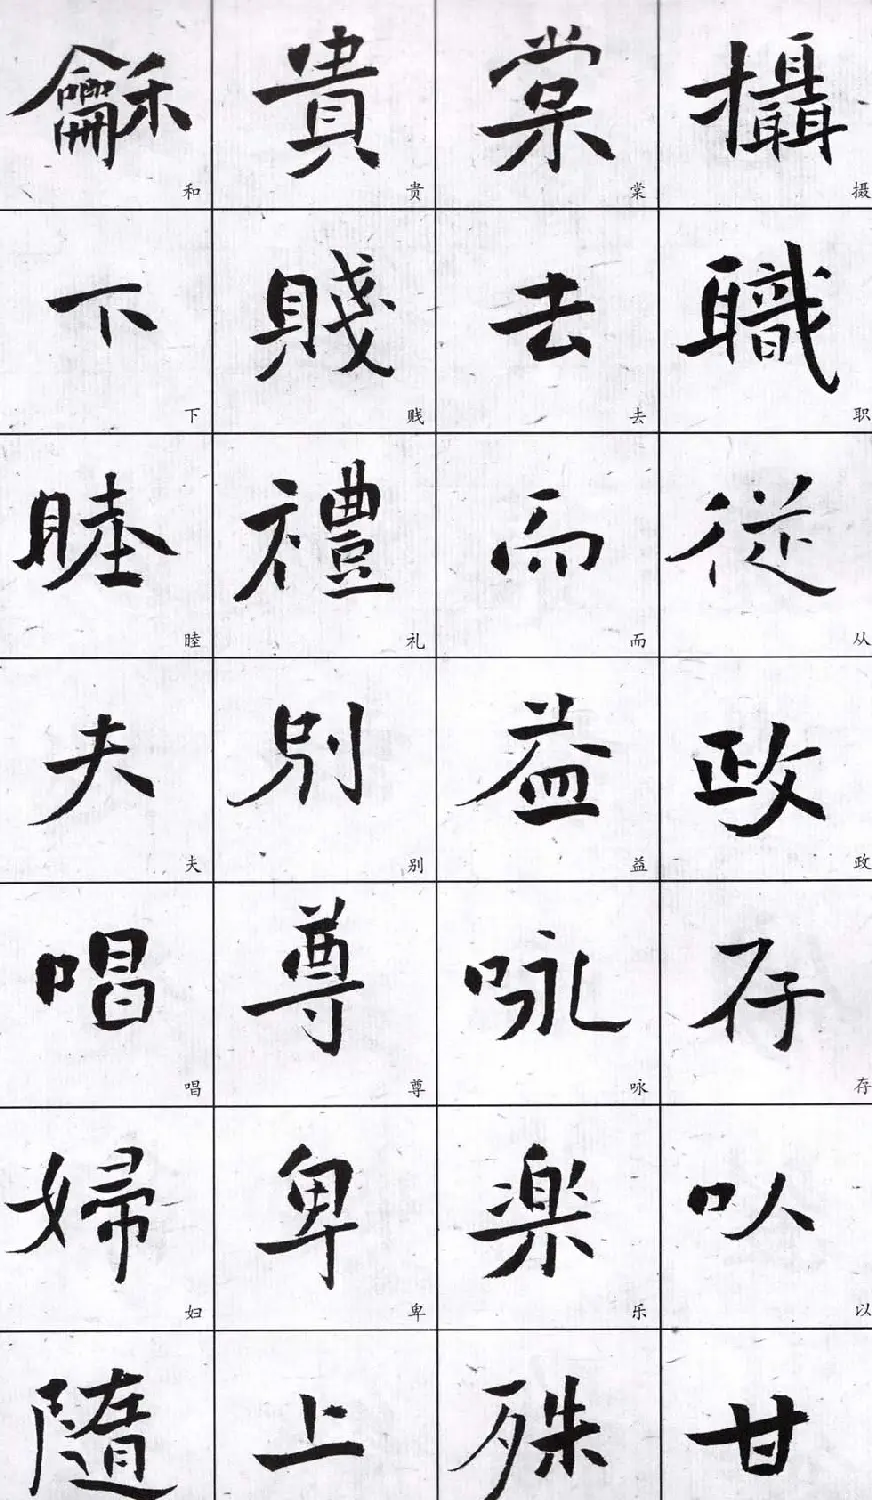 攝職從政存以甘
摄职从政存以
棠去而益咏楽殊
棠去而益咏乐
貴賤禮别尊卑上
贵贱礼别尊卑
龢下睦夫唱婦随
和下睦夫唱妇